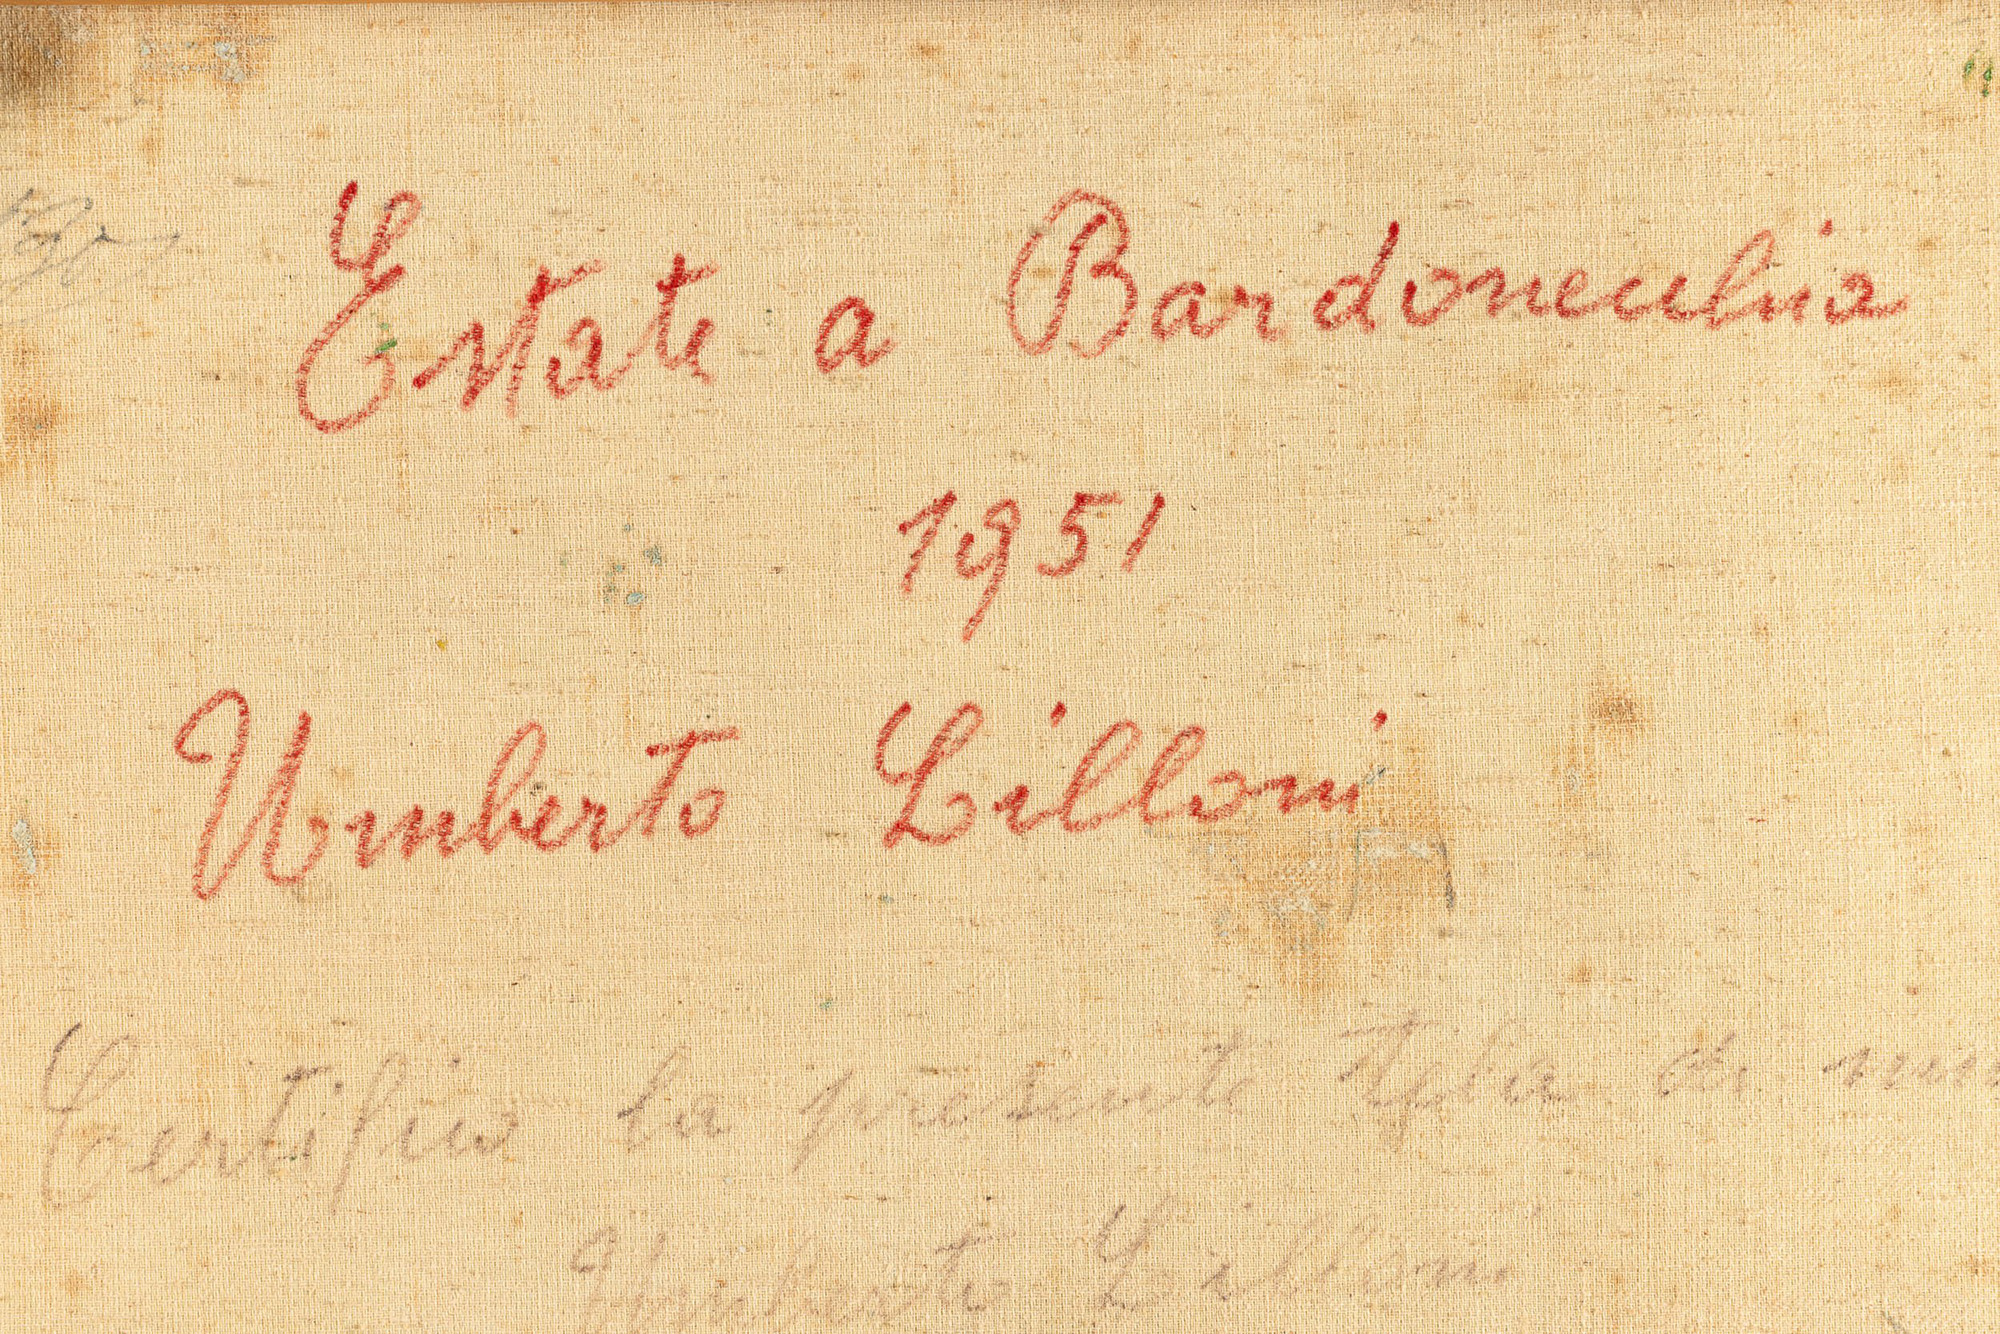 Estate a Bardonecchia
1951
Umberto Lilloni
Certifico la presente Tela di
Umberto Lilloni